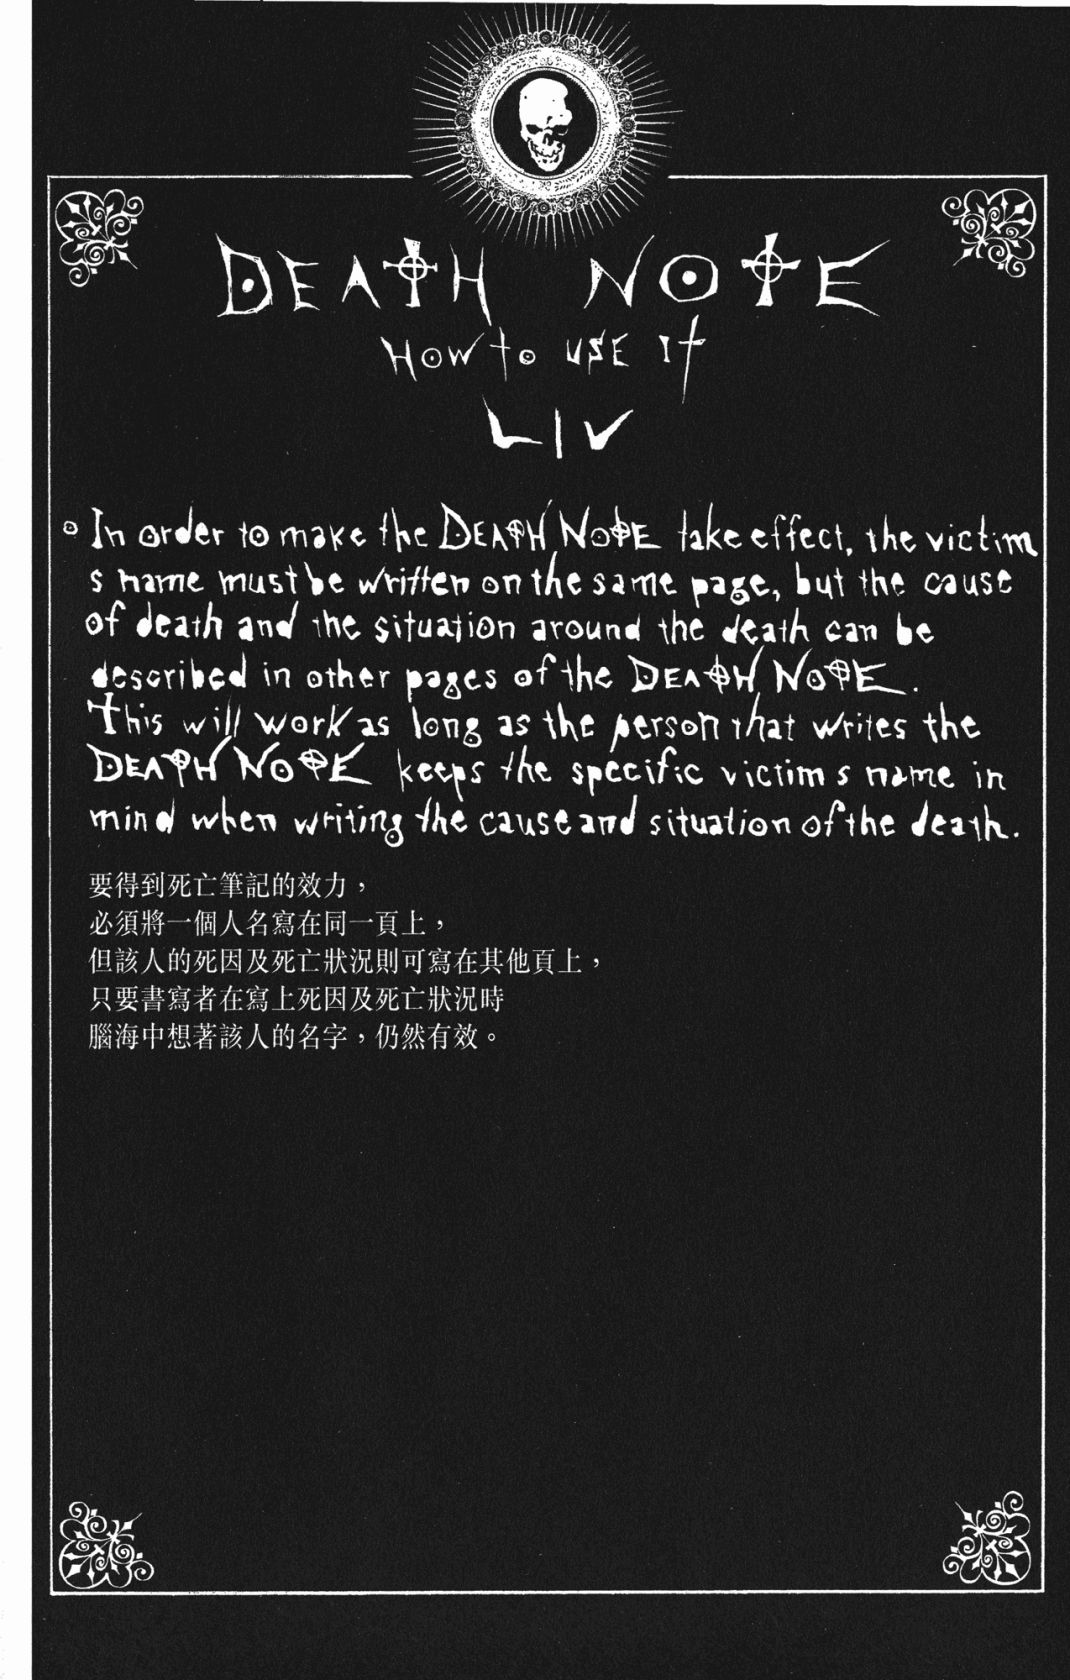 DEATH NOTE
HOW to USE It
LIV
In order to make the DEATH NOTE take effect, the victim
s name must be written on the same page, but the cause
of death and the situation around the death can be
described in other pages of the DEATH NOTE.
This will work as long as the person that writes the
DEATH NOTE keeps the specific victim s name in
mind when writing the cause and situation of the death.
要得到死亡筆記的效力，
必須將一個人名寫在同一頁上，
但該人的死因及死亡狀況則可寫在其他頁上，
只要書寫者在寫上死因及死亡狀況時
腦海中想著該人的名字，仍然有效。